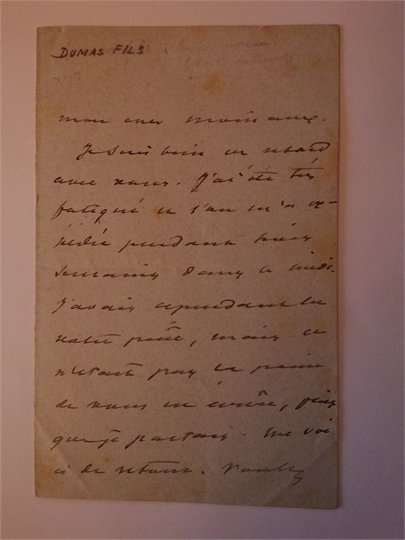 DUMAS FILS
mon cher Moinaux.
Je suis bien en retard
avec vous. J'ai été très
fatigué et l'on m'a ex-
pédié pendant trois
semaines dans le midi.
J'avais cependant lu
votre pièce, mais ce
n'était pas la peine
de vous en écrire, puis
que je partais. Me voi
ci de retour. Voulez